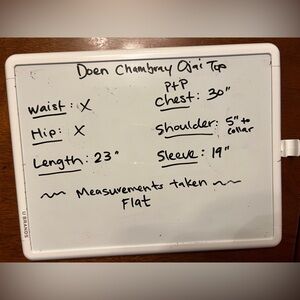 Doen Chambray Ojai Top
PtP
Waist: X Chest: 30"
Hip: X Shoulder: 5" to collar
Length: 23" Sleeve: 19"
~~ Measurements taken ~~
Flat
U BRANDS